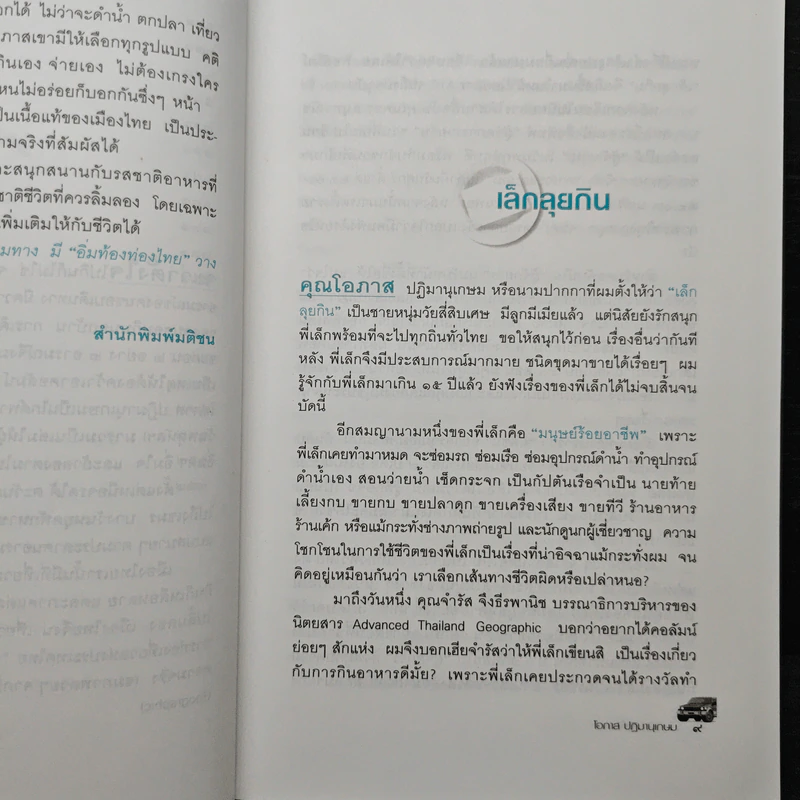 อกได้ ไม่ว่าจะดำน้ำ ตกปลา เที่ยว
ภาสเขามีให้เลือกทุกรูปแบบ คติ
กินเอง จ่ายเอง ไม่ต้องเกรงใคร
หนไม่อร่อยก็บอกกันซึ่งๆ หน้า
ป็นเนื้อแท้ของเมืองไทย เป็นประ-
ามจริงที่สัมผัสได้
ะสนุกสนานกับรสชาติอาหารที่
ชาติชีวิตที่ควรลิ้มลอง โดยเฉพาะ
พิ่มเติมให้กับชีวิตได้
มทาง มี “อิ่มท้องท่องไทย” วาง
สำนักพิมพ์มติชน
เล็กลุยกิน
คุณโอภาส ปฏิมานุเกษม หรือนามปากกาที่ผมตั้งให้ว่า “เล็ก
ลุยกิน” เป็นชายหนุ่มวัยสี่สิบเศษ มีลูกมีเมียแล้ว แต่นิสัยยังรักสนุก
พี่เล็กพร้อมที่จะไปทุกถิ่นทั่วไทย ขอให้สนุกไว้ก่อน เรื่องอื่นว่ากันที
หลัง พี่เล็กจึงมีประสบการณ์มากมาย ชนิดขุดมาขายได้เรื่อยๆ ผม
รู้จักกับพี่เล็กมาเกิน ๑๕ ปีแล้ว ยังฟังเรื่องของพี่เล็กได้ไม่จบสิ้นจน
บัดนี้
อีกสมญานามหนึ่งของพี่เล็กคือ “มนุษย์ร้อยอาชีพ” เพราะ
พี่เล็กเคยทำมาหมด จะซ่อมรถ ซ่อมเรือ ซ่อมอุปกรณ์ดำน้ำ ทำอุปกรณ์
ดำน้ำเอง สอนว่ายน้ำ เช็ดกระจก เป็นกัปตันเรือจำเป็น นายท้าย
เลี้ยงกบ ขายกบ ขายปลาดุก ขายเครื่องเสียง ขายทีวี ร้านอาหาร
ร้านเค้ก หรือแม้กระทั่งช่างภาพถ่ายรูป และนักดูนกผู้เชี่ยวชาญ ความ
โชกโชนในการใช้ชีวิตของพี่เล็กเป็นเรื่องที่น่าอิจฉาแม้กระทั่งผม จน
คิดอยู่เหมือนกันว่า เราเลือกเส้นทางชีวิตผิดหรือเปล่าหนอ?
มาถึงวันหนึ่ง คุณจำรัส จึงธีรพานิช บรรณาธิการบริหารของ
นิตยสาร Advanced Thailand Geographic บอกว่าอยากได้คอลัมน์
ย่อยๆ สักแห่ง ผมจึงบอกเฮียจำรัสว่าให้พี่เล็กเขียนสิ เป็นเรื่องเกี่ยว
กับการกินอาหารดีมั้ย? เพราะพี่เล็กเคยประกวดจนได้รางวัลทำ
โอภาส ปฏิมานุเกษม ๙